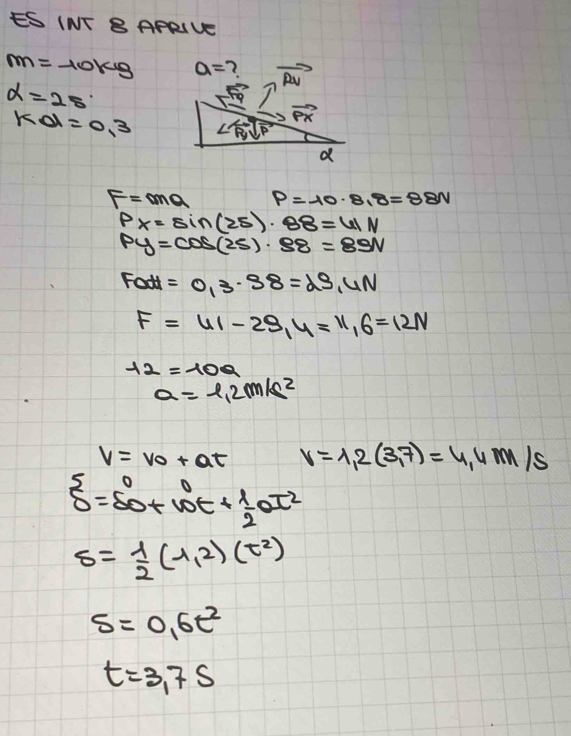 ES INT 8 APRILE
m=10kg a=? Rv
α=25°
kd=0,3 Px
Py P
α
F=ma P=10·9,8=98N
Px=sin(25)·98=41N
Py=cos(25)·98=89N
Fatt=0,3·98=29,4N
F=41-29,4=11,6=12N
12=10a
a=1,2m/s²
V=vo+at V=1,2(3,7)=4,4m/s
5 0 0
S=So+vot+1/2at²
s=1/2(1,2)(t²)
s=0,6t²
t=3,7s